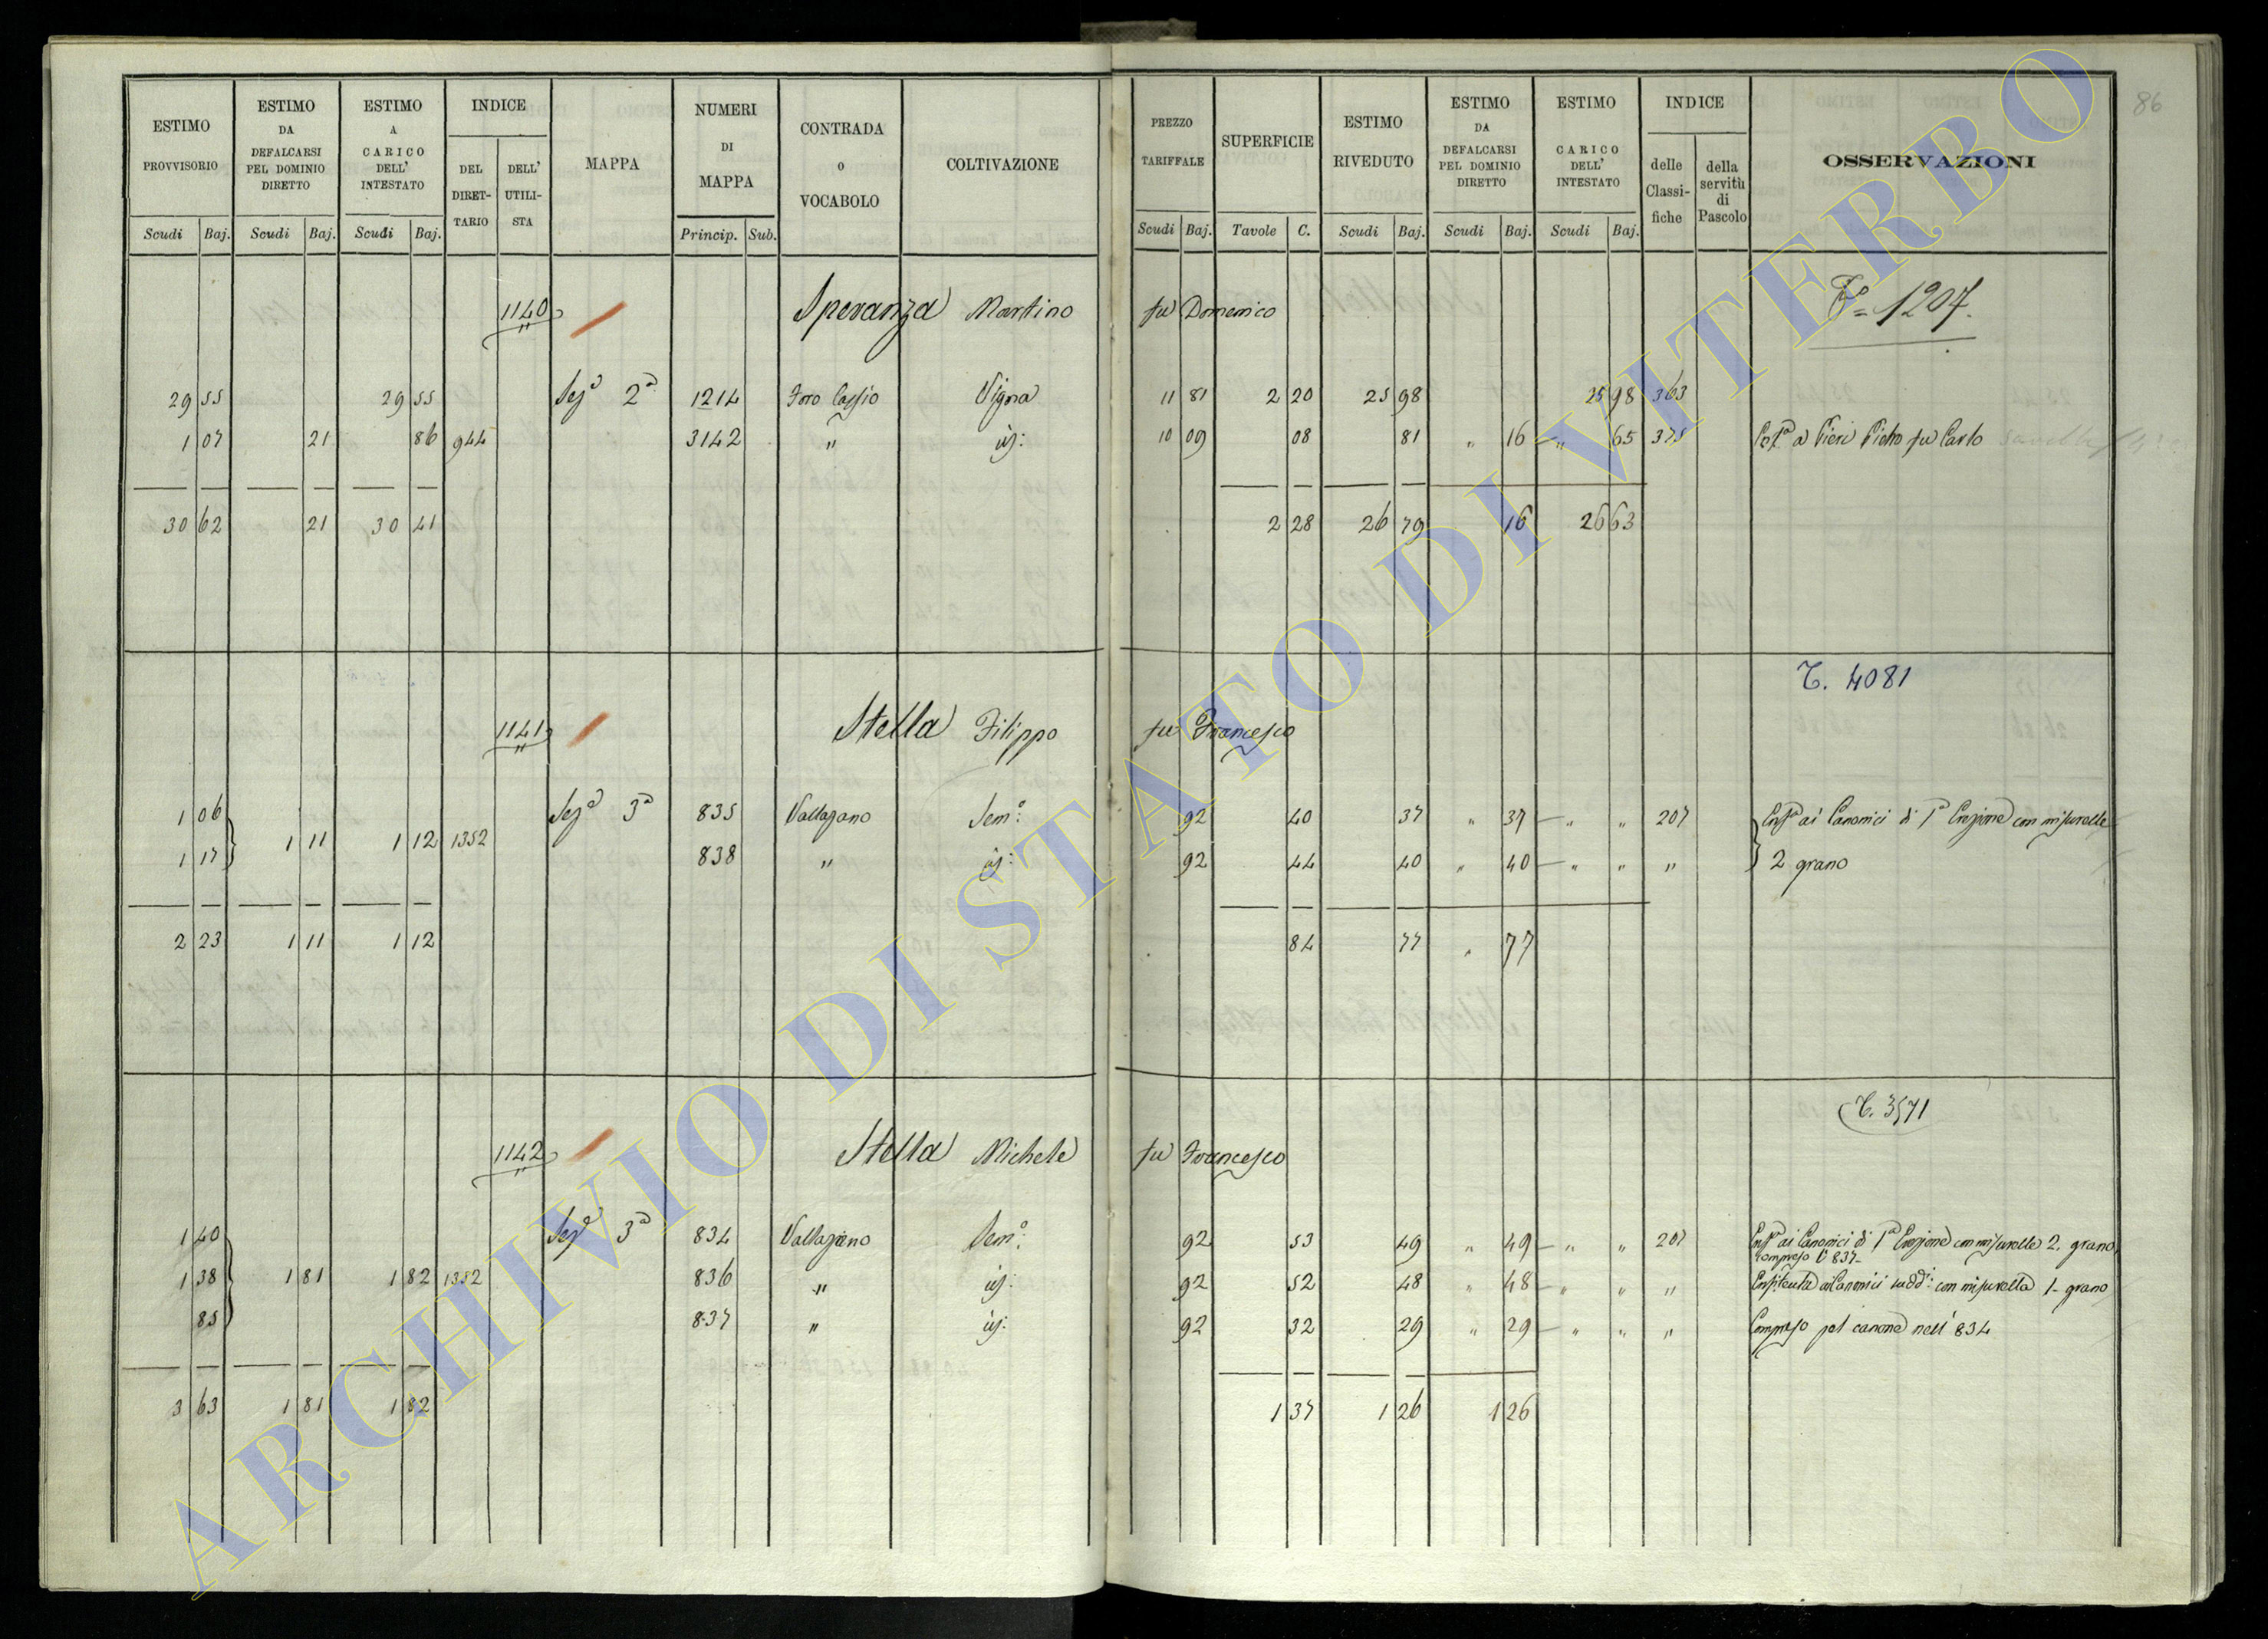 86
ESTIMO PROVVISORIO
ESTIMO DA DEFALCARSI PEL DOMINIO DIRETTO
ESTIMO A CARICO DELL' INTESTATO
INDICE
DEL DIRET-TARIO
DELL' UTILI-STA
MAPPA
NUMERI DI MAPPA
CONTRADA O VOCABOLO
COLTIVAZIONE
PREZZO TARIFFALE
SUPERFICIE
ESTIMO RIVEDUTO
ESTIMO DA DEFALCARSI PEL DOMINIO DIRETTO
ESTIMO A CARICO DELL' INTESTATO
INDICE
delle Classi-fiche
della servitù di Pascolo
OSSERVAZIONI
Scudi Baj. Scudi Baj. Scudi Baj. Princip. Sub. Scudi Baj. Tavole C. Scudi Baj. Scudi Baj. Scudi Baj.
1140 Speranza Martino fu Domenico 1207
29 55 29 55 Sez.a 2a 1214 Foro Cassio Vigna 11 81 2 20 25 98 25 98 363
1 07 21 86 944 3142 " id: 10 09 08 81 " 16 — " 65 375 a Pieri Pietro fu Carlo
30 62 21 30 41 2 28 26 79 16 26 63
T. 4081
1141 Stella Filippo fu Francesco
1 06 1 11 1 12 1352 Sez.a 3a 835 Vallazano Sem.o 92 40 37 " 37 — " " 207 Enf.a ai Canonici di con misurelle
1 17 838 " id: 92 44 40 " 40 — " " " 2 grano
2 23 1 11 1 12 84 77 " 77
T. 3571
1142 Stella Michele fu Francesco
1 40 Sez.a 3a 834 Vallazano Sem.o 92 53 49 " 49 — " " 207 Enf.a ai Canonici di con misurelle 2. grano
compreso il 837
1 38 1 81 1 82 1352 836 " id: 92 52 48 " 48 — " " " Enfiteuta ai Canonici sudd.i con misurella 1 - grano
85 837 " id: 92 32 29 " 29 — " " " Compreso pel canone nell' 834
3 63 1 81 1 82 1 37 1 26 1 26
ARCHIVIO DI STATO DI VITERBO